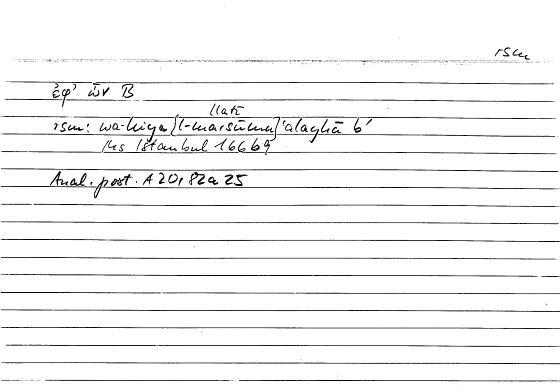 rsm
ἐφ' ὧν B
llatī
rsm: wa-hiya [l-marsūma] ʿalayhā b'
Hs Istanbul 166b9
Anal. post. A 20, 82a25